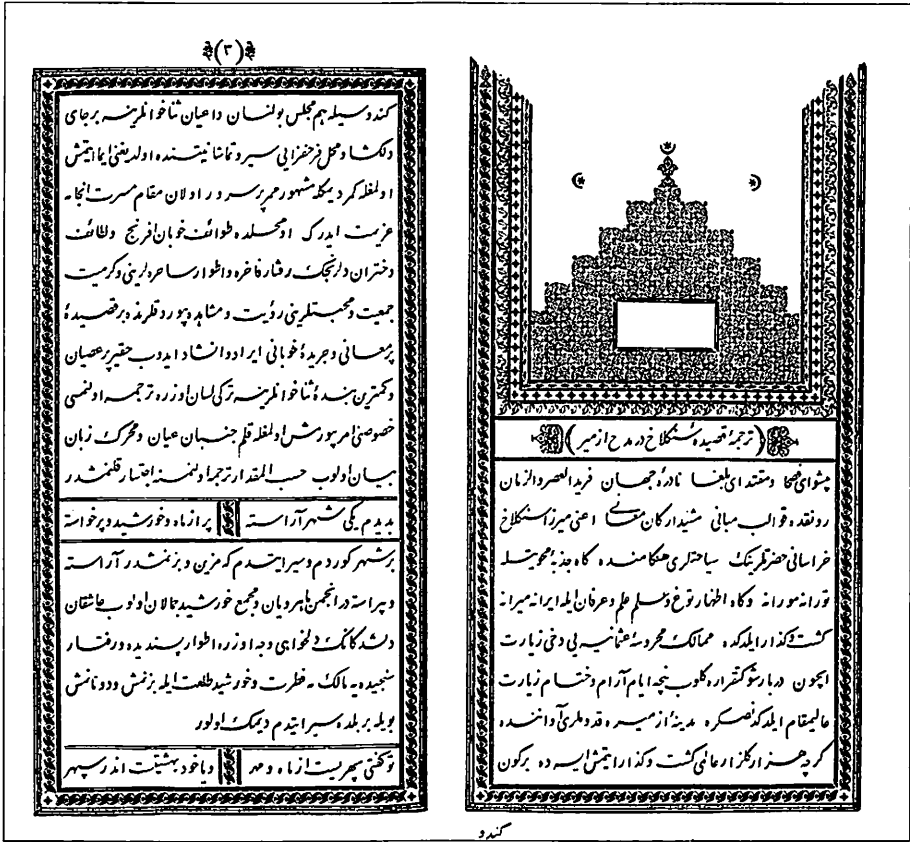 ﴿ ترجمهٔ قصیدهٔ سنکلاخ در مدح ازمیر ﴾
پیشوای فصحا ومقتدای بلغا نادرهٔ جهان فرید العصر والزمان
رونقده قوالب مبانی مشیدارکان معانی اعنی میرزا سنکلاخ
خراسانی حضرتلرینک سیاحتلری هنکامنده کاه جذبهٔ محویتله
تورانه مورانه وکاه اظهار نوغ وسلم علم وعرفان ایله ایرانه میرانه
کشت وکذار ایلدکده ممالک محروسهٔ عثمانیه یی دخی زیارت
ایچون دربار شوکتقراره کلوب نیچه ایام آرام وختام زیارت
عالیمقام ایلدکدنصکره مدینهٔ ازمیره قدوملری آواننده
کرچه هزار کلزار عالمی کشت وکذار ایتمش ایسه ده برکون
کندو
(٣)
کندوسیله هم مجلس بولنان داعیان ثناخوانلرینه بر جای
دلکشا ومحل فرحفزایی سیر وتماشا نیتنده اولدیغنی ایما ایتمش
اولمغله کمر دیمکله مشهور ممر پرسرور اولان مقام مسرت انجامه
عزیمت ایدرک اومحلده طوائف خوبان افرنج ولطائف
دختران دلرنجک رفتار فاخره واطوار ساحره لرینی وکرمیت
جمعیت ومحبتلرینی رؤیت ومشاهده بیوردقلرنده بر قصیدهٔ
پرمعانی وجریدهٔ خوبانی ایراد وانشاد ایدوب حقیر پرعصیان
وکمترین بندهٔ ثناخوانلرینه ترکی لسان اوزره ترجمه اولنمسی
خصوصنی امر بیورمش اولمغله قلم جنبان عیان ومحرک زبان
بیان اولوب حسب المقدار ترجمه اولنمسنه ابتدار قلنمشدر
بدیدم یکی شهر آراسته پر از ماه وخورشید وپرخواسته
بر شهر کوردم وسیر ایتدم که مزین وبزنمشدر آراسته
وپیراسته در انجمن ماهرویان ومجمع خورشید جمالان اولوب عاشقان
دلشدکانک دلخواهی وجه اوزره اطوار پسندیده ورفتار
سنجیده یه مالک مه فطرت وخورشید طلعت ایله بزنمش ودونانمش
بویله بر بلده سیر ایتدم دیمک اولور
توکفتی سپهریست از ماه ومهر ویاخود بهشتیست اندر سپهر